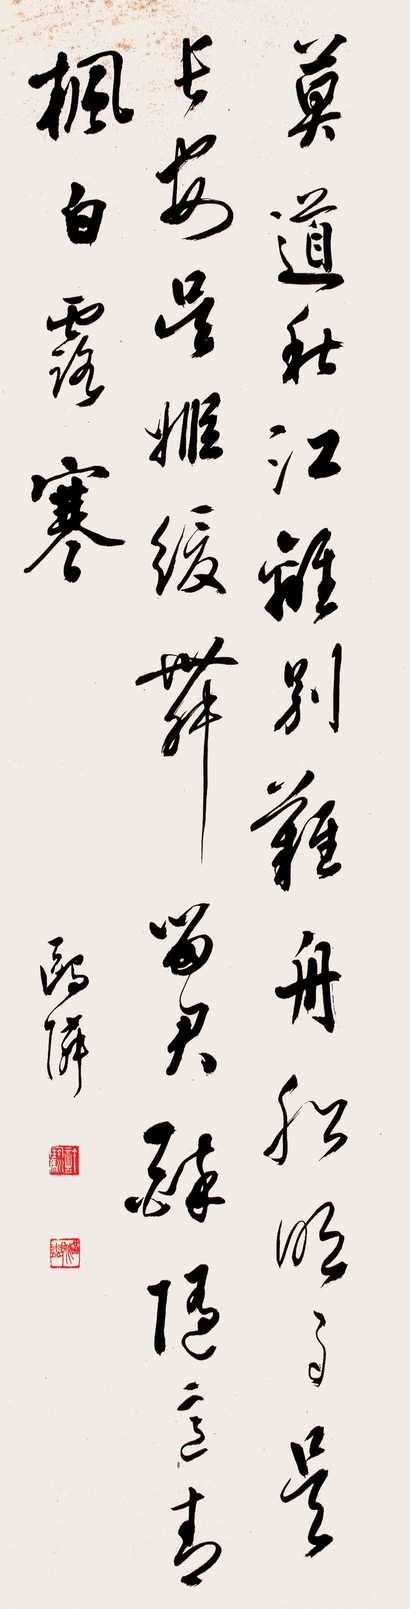 莫道秋江離別難舟船明日是
長安吳姬緩舞留君醉隨意青
楓白露寒
鷗隣